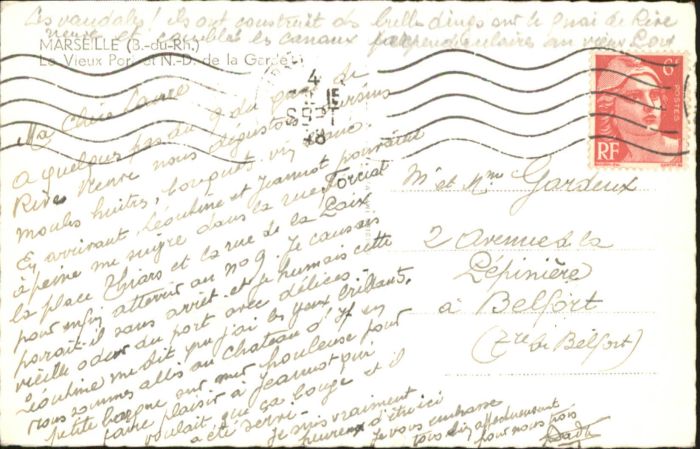 Ces vandales ! ils ont construit des buildings sur le quai de Rive
neuve et comblé les canaux perpendiculaires au vieux Port
MARSEILLE (B.-du-Rh.)
Le Vieux Port et N.-D. de la Garde
4
15
SEPT
48
6F
POSTES
RF
Ma chère
a quelques pas du 9 du quai de
Rive Neuve nous dégustons oursins
moules huitres, bouquets vin blanc.
En arrivant Léontine et Jeannot pouvaient
à peine me suivre dans la rue Forcial
la place Thiars et la rue de la Paix
pour enfin atterrir au no 9. Je causais
parait-il sans arrêt et je humais cette
vieille odeur du port avec délices.
Léontine me dit que j'ai les yeux brillants.
nous sommes allés au chateau d'If en
petite barque sur mer houleuse pour
faire plaisir à Jeannot qui
voulait que ça bouge et il
a été servi.
Je suis vraiment
heureux d'être ici
Je vous embrasse
tous bien affectueusement
pour nous trois
M et Mme Gardeux
2 Avenue de la
Pépinière
à Belfort
(Tre de Belfort)